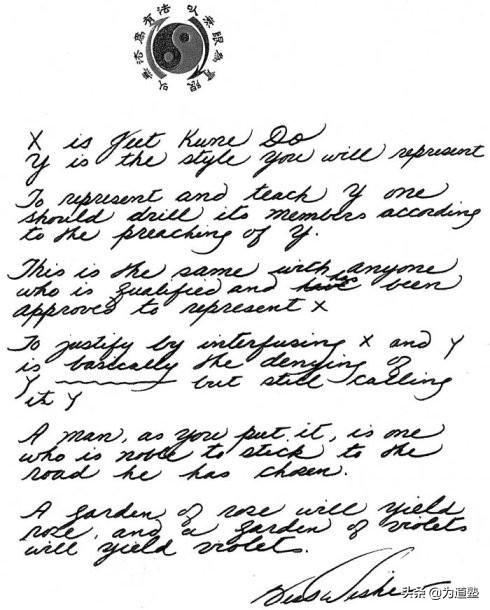 以無法為有法 以無限為有限
X is Jeet Kune Do
Y is the style you will represent
To represent and teach Y one
should drill its members according
to the preaching of Y.
This is the same with anyone
who is qualified and has been
approved to represent X
To justify by interfusing X and Y
is basically the denying of
Y ———— but still calling
it Y
A man, as you put it, is one
who is noble to stick to the
road he has chosen.
A garden of rose will yield
rose, and a garden of violets
will yield violets.
Best Wishes
头条 @为道塾